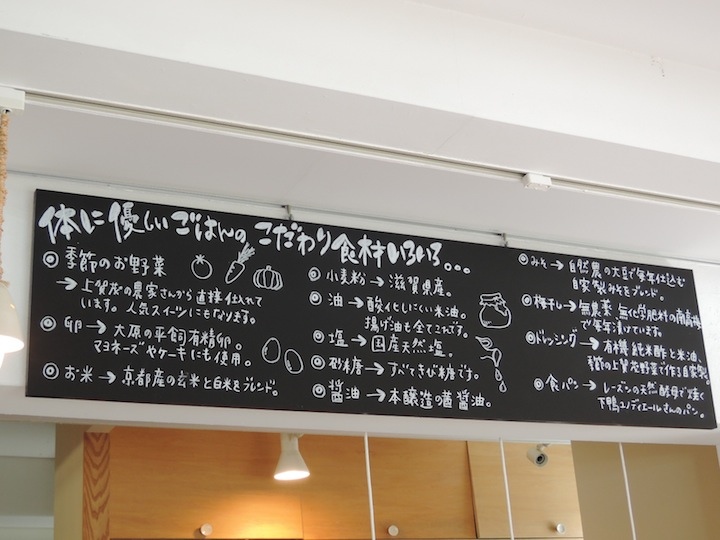 体に優しいごはんの こだわり食材いろいろ...
◎季節のお野菜
→上賀茂の農家さんから直接仕入れて
います。人気スイーツにもなります。
◎卵→大原の平飼有精卵。
マヨネーズやケーキにも使用。
◎お米→京都産の玄米と白米をブレンド。
◎小麦粉→滋賀県産。
◎油→酸化しにくい米油。
揚げ油も全てこれです。
◎塩→国産天然塩。
◎砂糖→すべてきび糖です。
◎醤油→本醸造の醤油。
◎みそ→自然農の大豆で毎年仕込む
自家製みそをブレンド。
◎梅干し→無農薬、無化学肥料の南高梅
で毎年漬けています。
◎ドレッシング→有機純米酢と米油、
季節の上賀茂野菜で作る自家製。
◎食パン→レーズンの天然酵母で焼く
下鴨ユノディエールさんのパン。